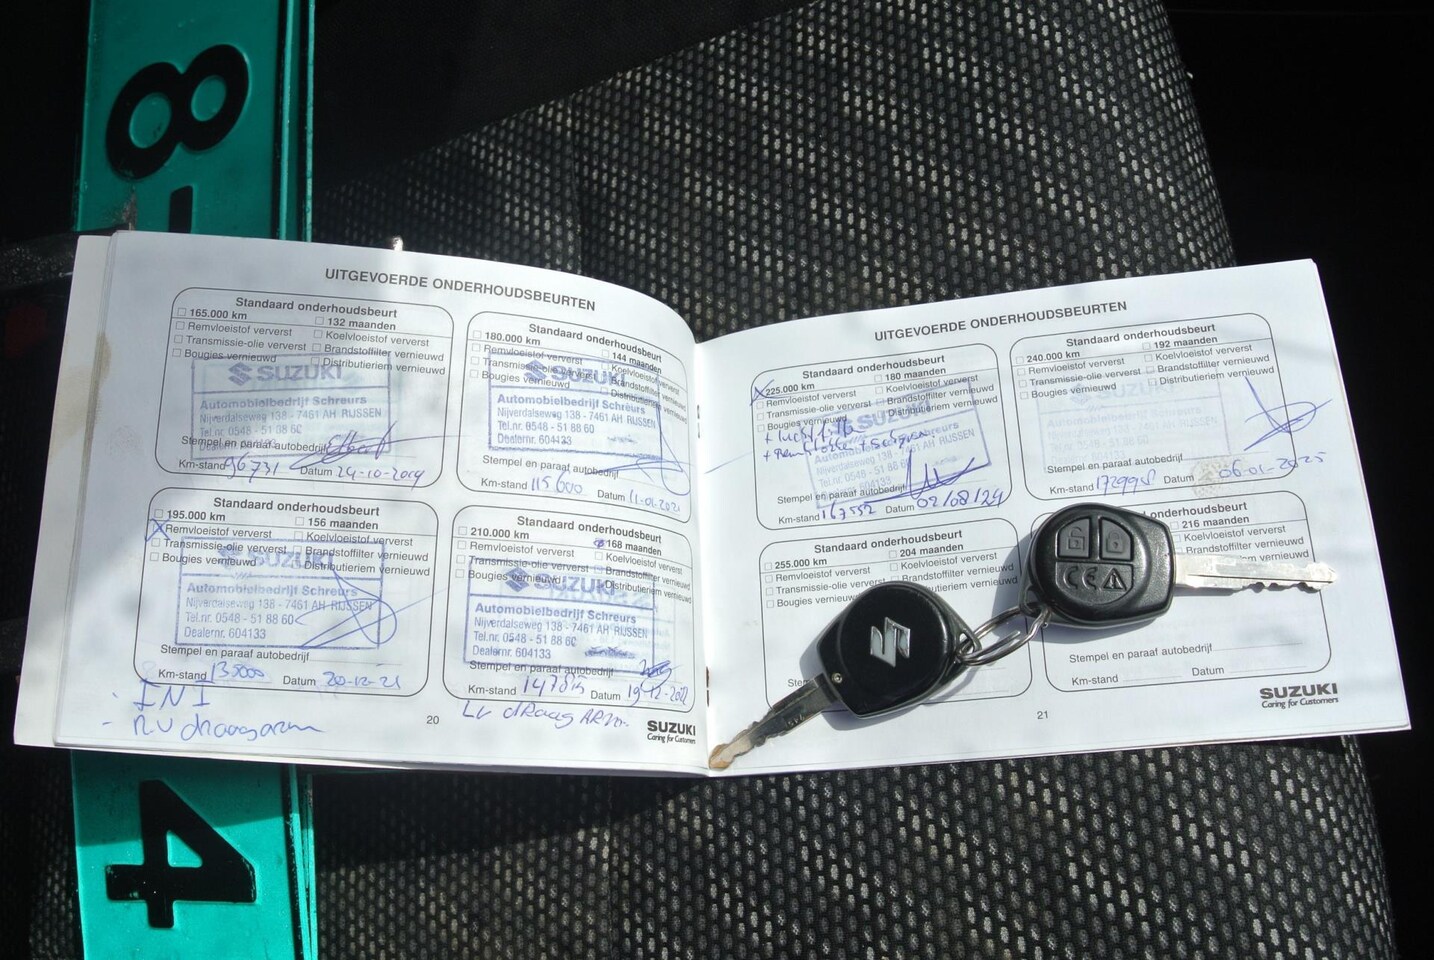 8-
UITGEVOERDE ONDERHOUDSBEURTEN
Standaard onderhoudsbeurt
165.000 km
132 maanden
Remvloeistof ververst
Koelvloeistof ververst
Transmissie-olie ververst
Brandstoffilter vernieuwd
Bougies vernieuwd
Distributieriem vernieuwd
SUZUKI
Automobielbedrijf Schreurs
Nijverdalseweg 138 - 7461 AH RIJSSEN
Tel.nr. 0548 - 51 88 60
Dealernr. 604133
Stempel en paraaf autobedrijf
Km-stand 96731 Datum 24-10-2019
Standaard onderhoudsbeurt
180.000 km
144 maanden
Remvloeistof ververst
Koelvloeistof ververst
Transmissie-olie ververst
Brandstoffilter vernieuwd
Bougies vernieuwd
Distributieriem vernieuwd
SUZUKI
Automobielbedrijf Schreurs
Nijverdalseweg 138 - 7461 AH RIJSSEN
Tel.nr. 0548 - 51 88 60
Dealernr. 604133
Stempel en paraaf autobedrijf
Km-stand 115600 Datum 11-01-2021
Standaard onderhoudsbeurt
195.000 km
156 maanden
Remvloeistof ververst
Koelvloeistof ververst
Transmissie-olie ververst
Brandstoffilter vernieuwd
Bougies vernieuwd
Distributieriem vernieuwd
SUZUKI
Automobielbedrijf Schreurs
Nijverdalseweg 138 - 7461 AH RIJSSEN
Tel.nr. 0548 - 51 88 60
Dealernr. 604133
Stempel en paraaf autobedrijf
Km-stand 135000 Datum 20-12-21
- INI
- RV draagarm
Standaard onderhoudsbeurt
210.000 km
168 maanden
Remvloeistof ververst
Koelvloeistof ververst
Transmissie-olie ververst
Brandstoffilter vernieuwd
Bougies vernieuwd
Distributieriem vernieuwd
SUZUKI
Automobielbedrijf Schreurs
Nijverdalseweg 138 - 7461 AH RIJSSEN
Tel.nr. 0548 - 51 88 60
Dealernr. 604133
Stempel en paraaf autobedrijf
Km-stand Datum 19-12-2022
LV draag
20
SUZUKI
Caring for Customers
UITGEVOERDE ONDERHOUDSBEURTEN
Standaard onderhoudsbeurt
225.000 km
180 maanden
Remvloeistof ververst
Koelvloeistof ververst
Transmissie-olie ververst
Brandstoffilter vernieuwd
Bougies vernieuwd
Distributieriem vernieuwd
Automobielbedrijf Schreurs
Nijverdalseweg 138 - 7461 AH RIJSSEN
Tel.nr. 0548 - 51 88 60
Dealernr. 604133
Stempel en paraaf autobedrijf
Km-stand 167552 Datum 02/08/24
Standaard onderhoudsbeurt
240.000 km
192 maanden
Remvloeistof ververst
Koelvloeistof ververst
Transmissie-olie ververst
Brandstoffilter vernieuwd
Bougies vernieuwd
Distributieriem vernieuwd
Stempel en paraaf autobedrijf
Km-stand Datum 06-01-2025
Standaard onderhoudsbeurt
255.000 km
204 maanden
Remvloeistof ververst
Koelvloeistof ververst
Transmissie-olie ververst
Brandstoffilter vernieuwd
Bougies vernieuwd
onderhoudsbeurt
216 maanden
Koelvloeistof ververst
Brandstoffilter vernieuwd
Stempel en paraaf autobedrijf
Km-stand Datum
CE
21
SUZUKI
Caring for Customers
4